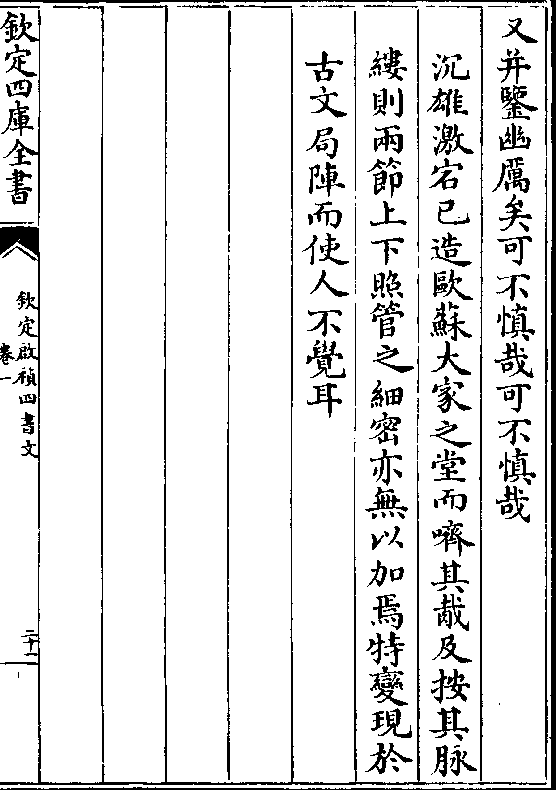 又并鑒幽厲矣可不慎哉可不慎哉
沉雄激宕已造歐蘇大家之堂而嚌其胾及按其脉
縷則兩節上下照管之細密亦無以加焉特變現於
古文局陣而使人不覺耳
欽定四庫全書
欽定啟禎四書文
卷一
二十一